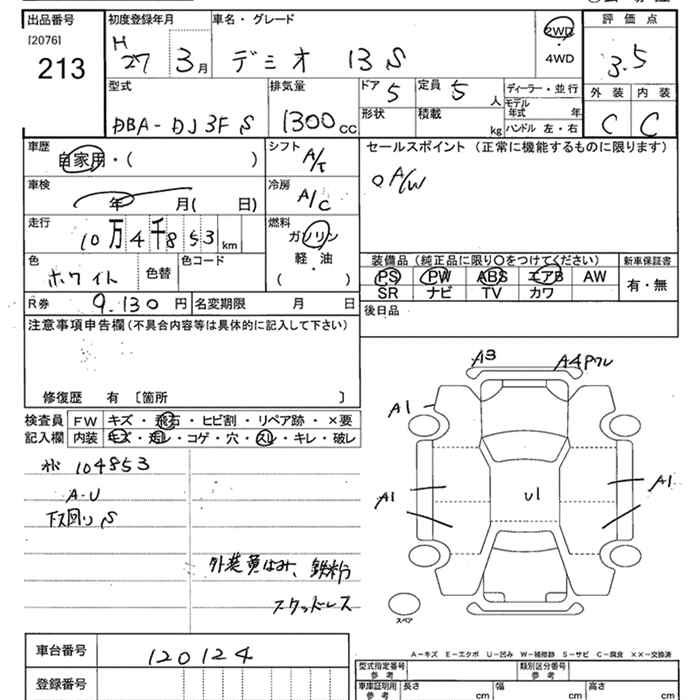 出品番号 初度登録年月 車名・グレード 2WD 評価点
[2076]
213 H 27 3月 デミオ 13S 4WD 3.5
型式 排気量 ドア 5 定員 5 人 ディーラー・並行 外装 内装
DBA-DJ3FS 1300cc 形状 積載 kg モデル年式 年 C C
ハンドル 左・右
車歴 自家用・( ) シフト A/T セールスポイント (正常に機能するものに限ります)
車検 年 月( 日) 冷房 A/C A/W
走行 10万4千853km 燃料 ガソリン
軽・油
( )
色 ホワイト 色替 色コード 装備品 (純正品に限り○をつけてください) 新車保証書
PS PW ABS エアB AW 有・無
SR ナビ TV カワ
R券 9.130円 名変期限 月 日 後日品
注意事項申告欄(不具合内容等は具体的に記入して下さい)
修復歴 有 [箇所 ]
検査員 FW キズ・飛石・ヒビ割・リペア跡・×要
記入欄 内装 キズ・・コゲ・穴・スレ・キレ・破レ
104853
A-U
下回りS
外装黄ばみ、鉄粉
スタッドレス
A3 A4Pワレ
A1
A1 U1 A1
スペア
A-キズ E-エクボ U-凹み W-補修跡 S-サビ C-腐食 ××-交換済
車台番号 120124
型式指定番号 参考 類別区分番号 参考
登録番号 車庫証明用 参考 長さ cm 幅 cm 高さ cm